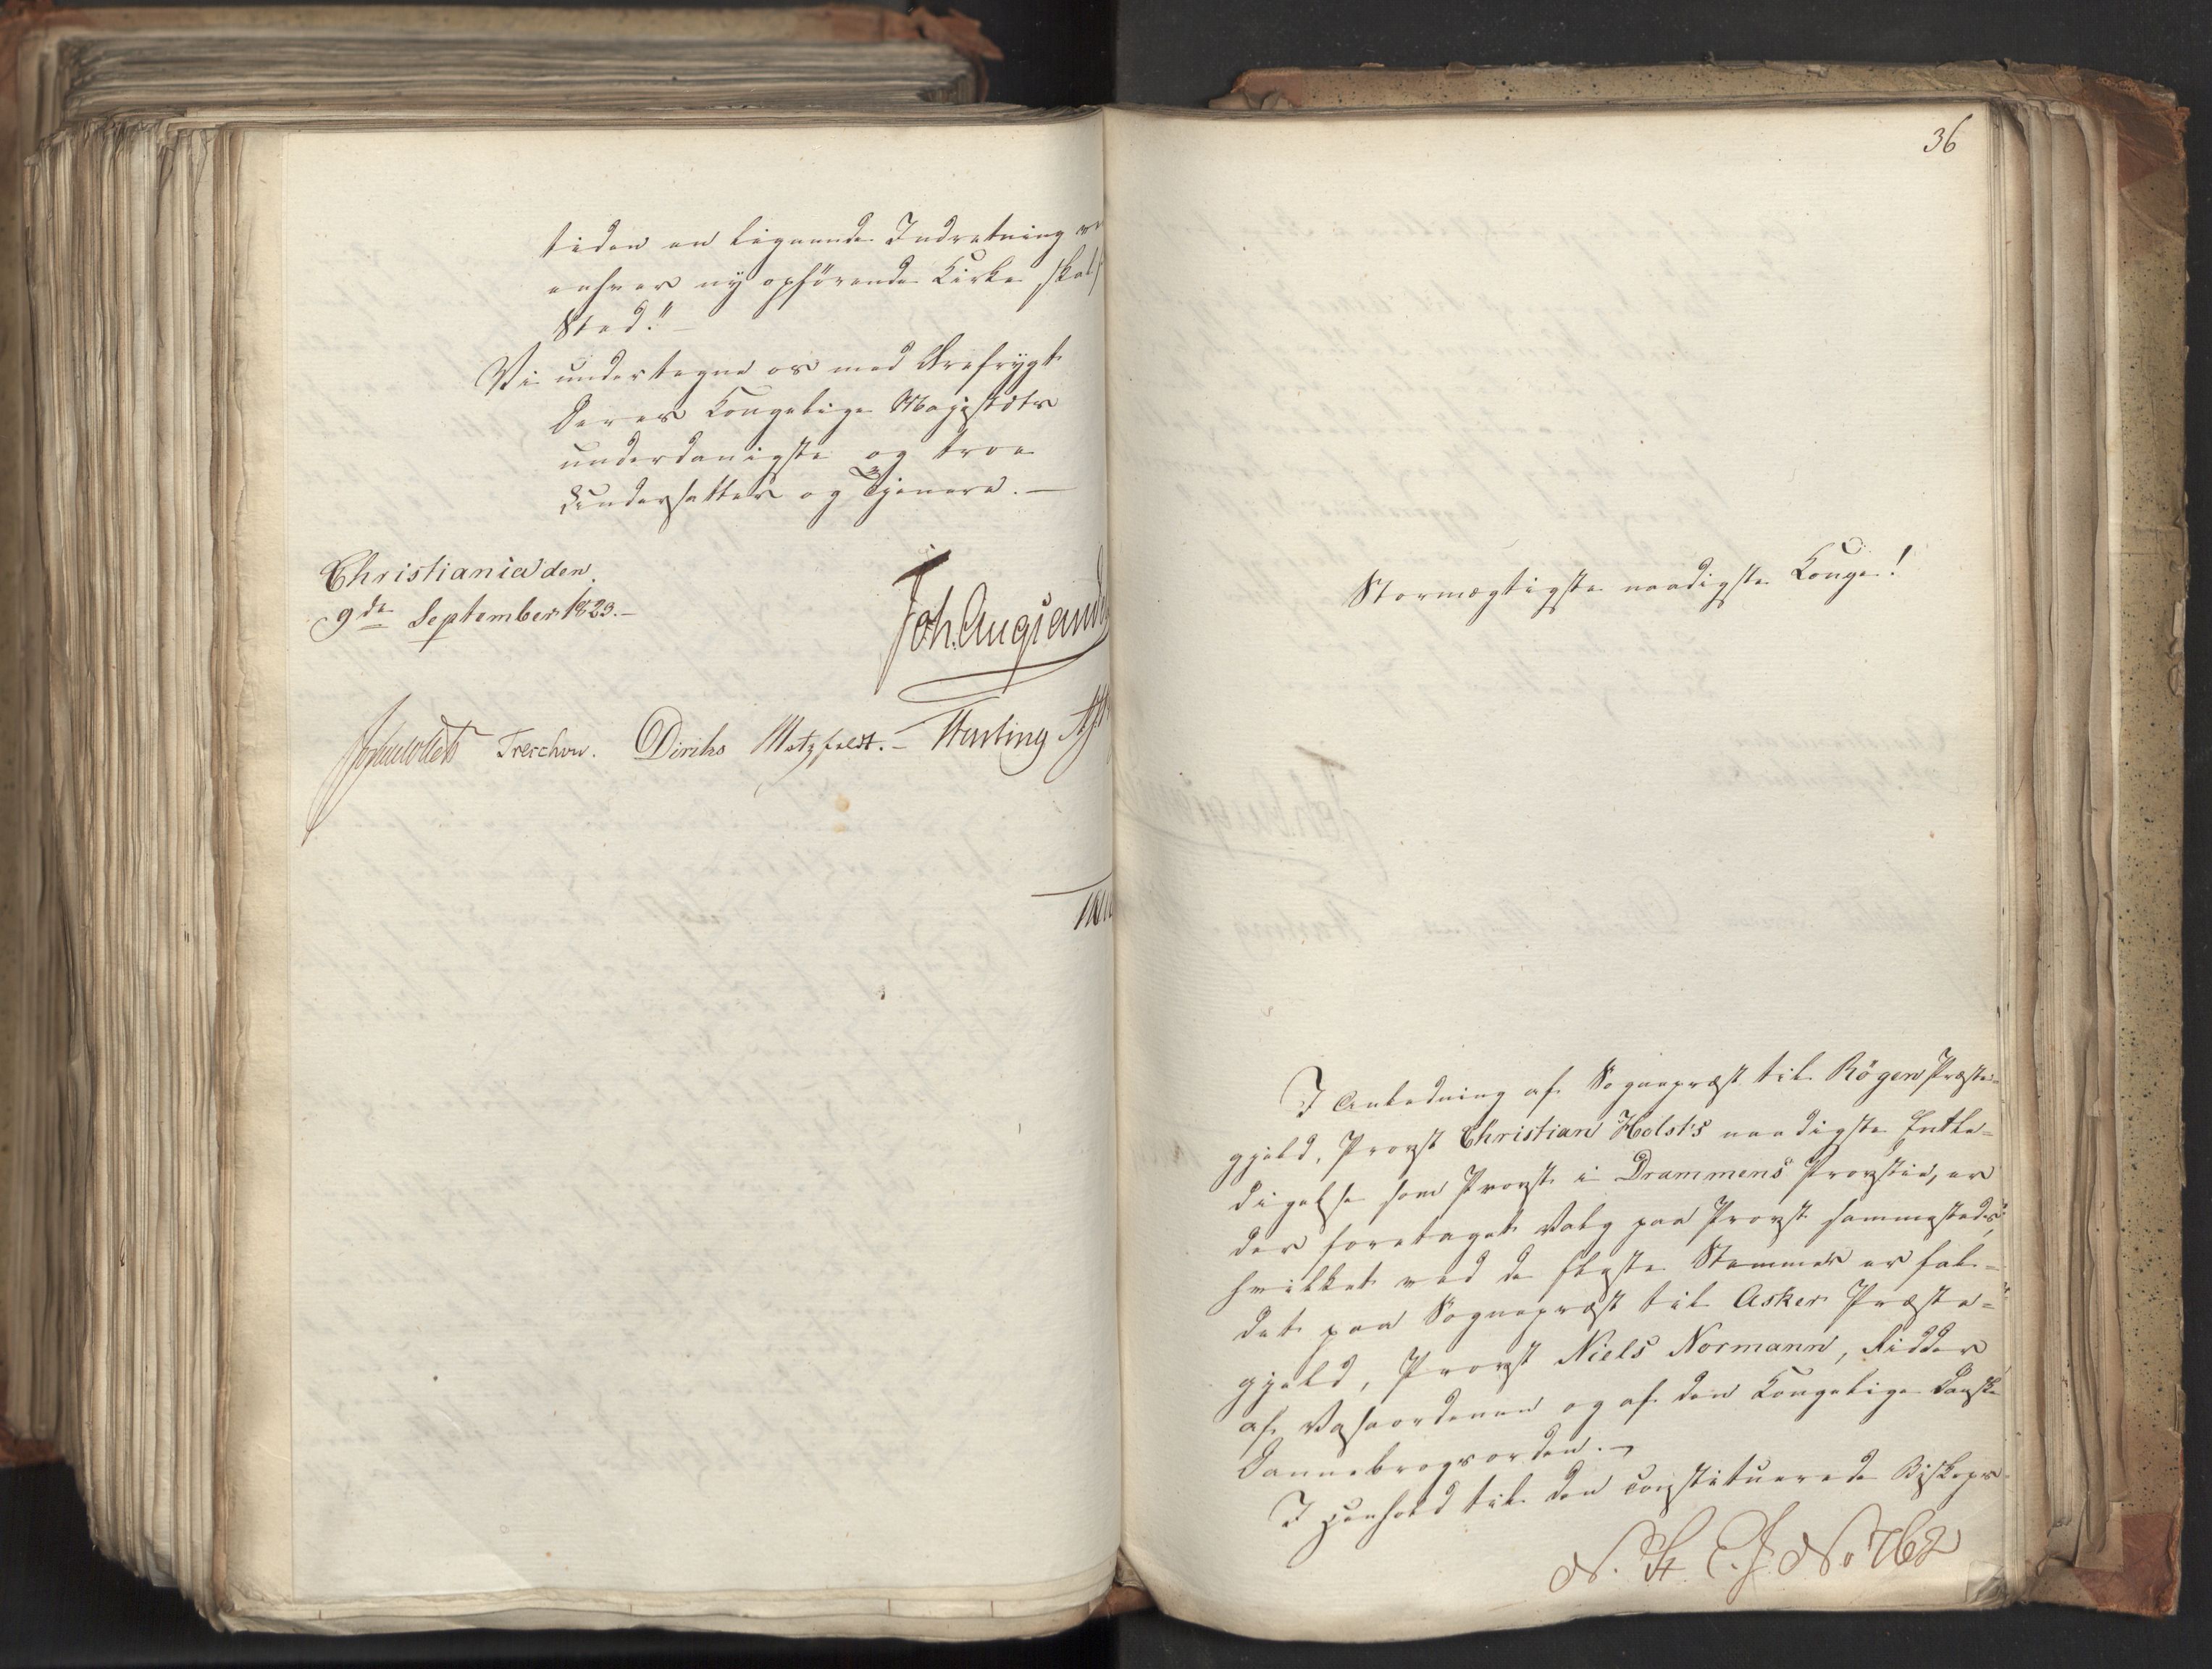 tiden en lignende Indretning
enhver ny opførende Kirke skal
Sted."—
Vi undertegne os med Ærefrygt
Deres Kongelige Majestæts
underdanigste og troe
Undersatter og Tjenere.—
Christiania den
9de September 1823.—
Joh. Aug. Sand
Treschow. Diriks Motzfeldt.— Fasting
36
Stormægtigste naadigste Konge!
I Anledning af Sognepræst til Rögen Præste-
gjeld, Provst Christian Holst's naadigste Entle-
digelse som Provst i Drammens Provstie, er
der foretaget Valg paa Provst sammesteds,
hvilket ved de fleste Stemmer er fal-
det paa Sognepræst til Asker Præste-
gjeld, Provst Niels Normann, Ridder
af Vasaordenen og af den Kongelige Danske
Dannebrogsorden.—
I Henhold til den constituerede Biskops
N. St. E. J. No 762